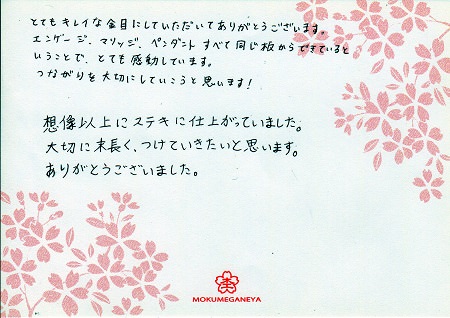 とてもキレイな金目にしていただいてありがとうございます。
エンゲージ、マリッジ、ペンダント すべて同じ板からできていると
いうことで、とても感動しています。
つながりを大切にしていこうと思います!
想像以上にステキに仕上がっていました。
大切に末長く、つけていきたいと思います。
ありがとうございました。
MOKUMEGANEYA